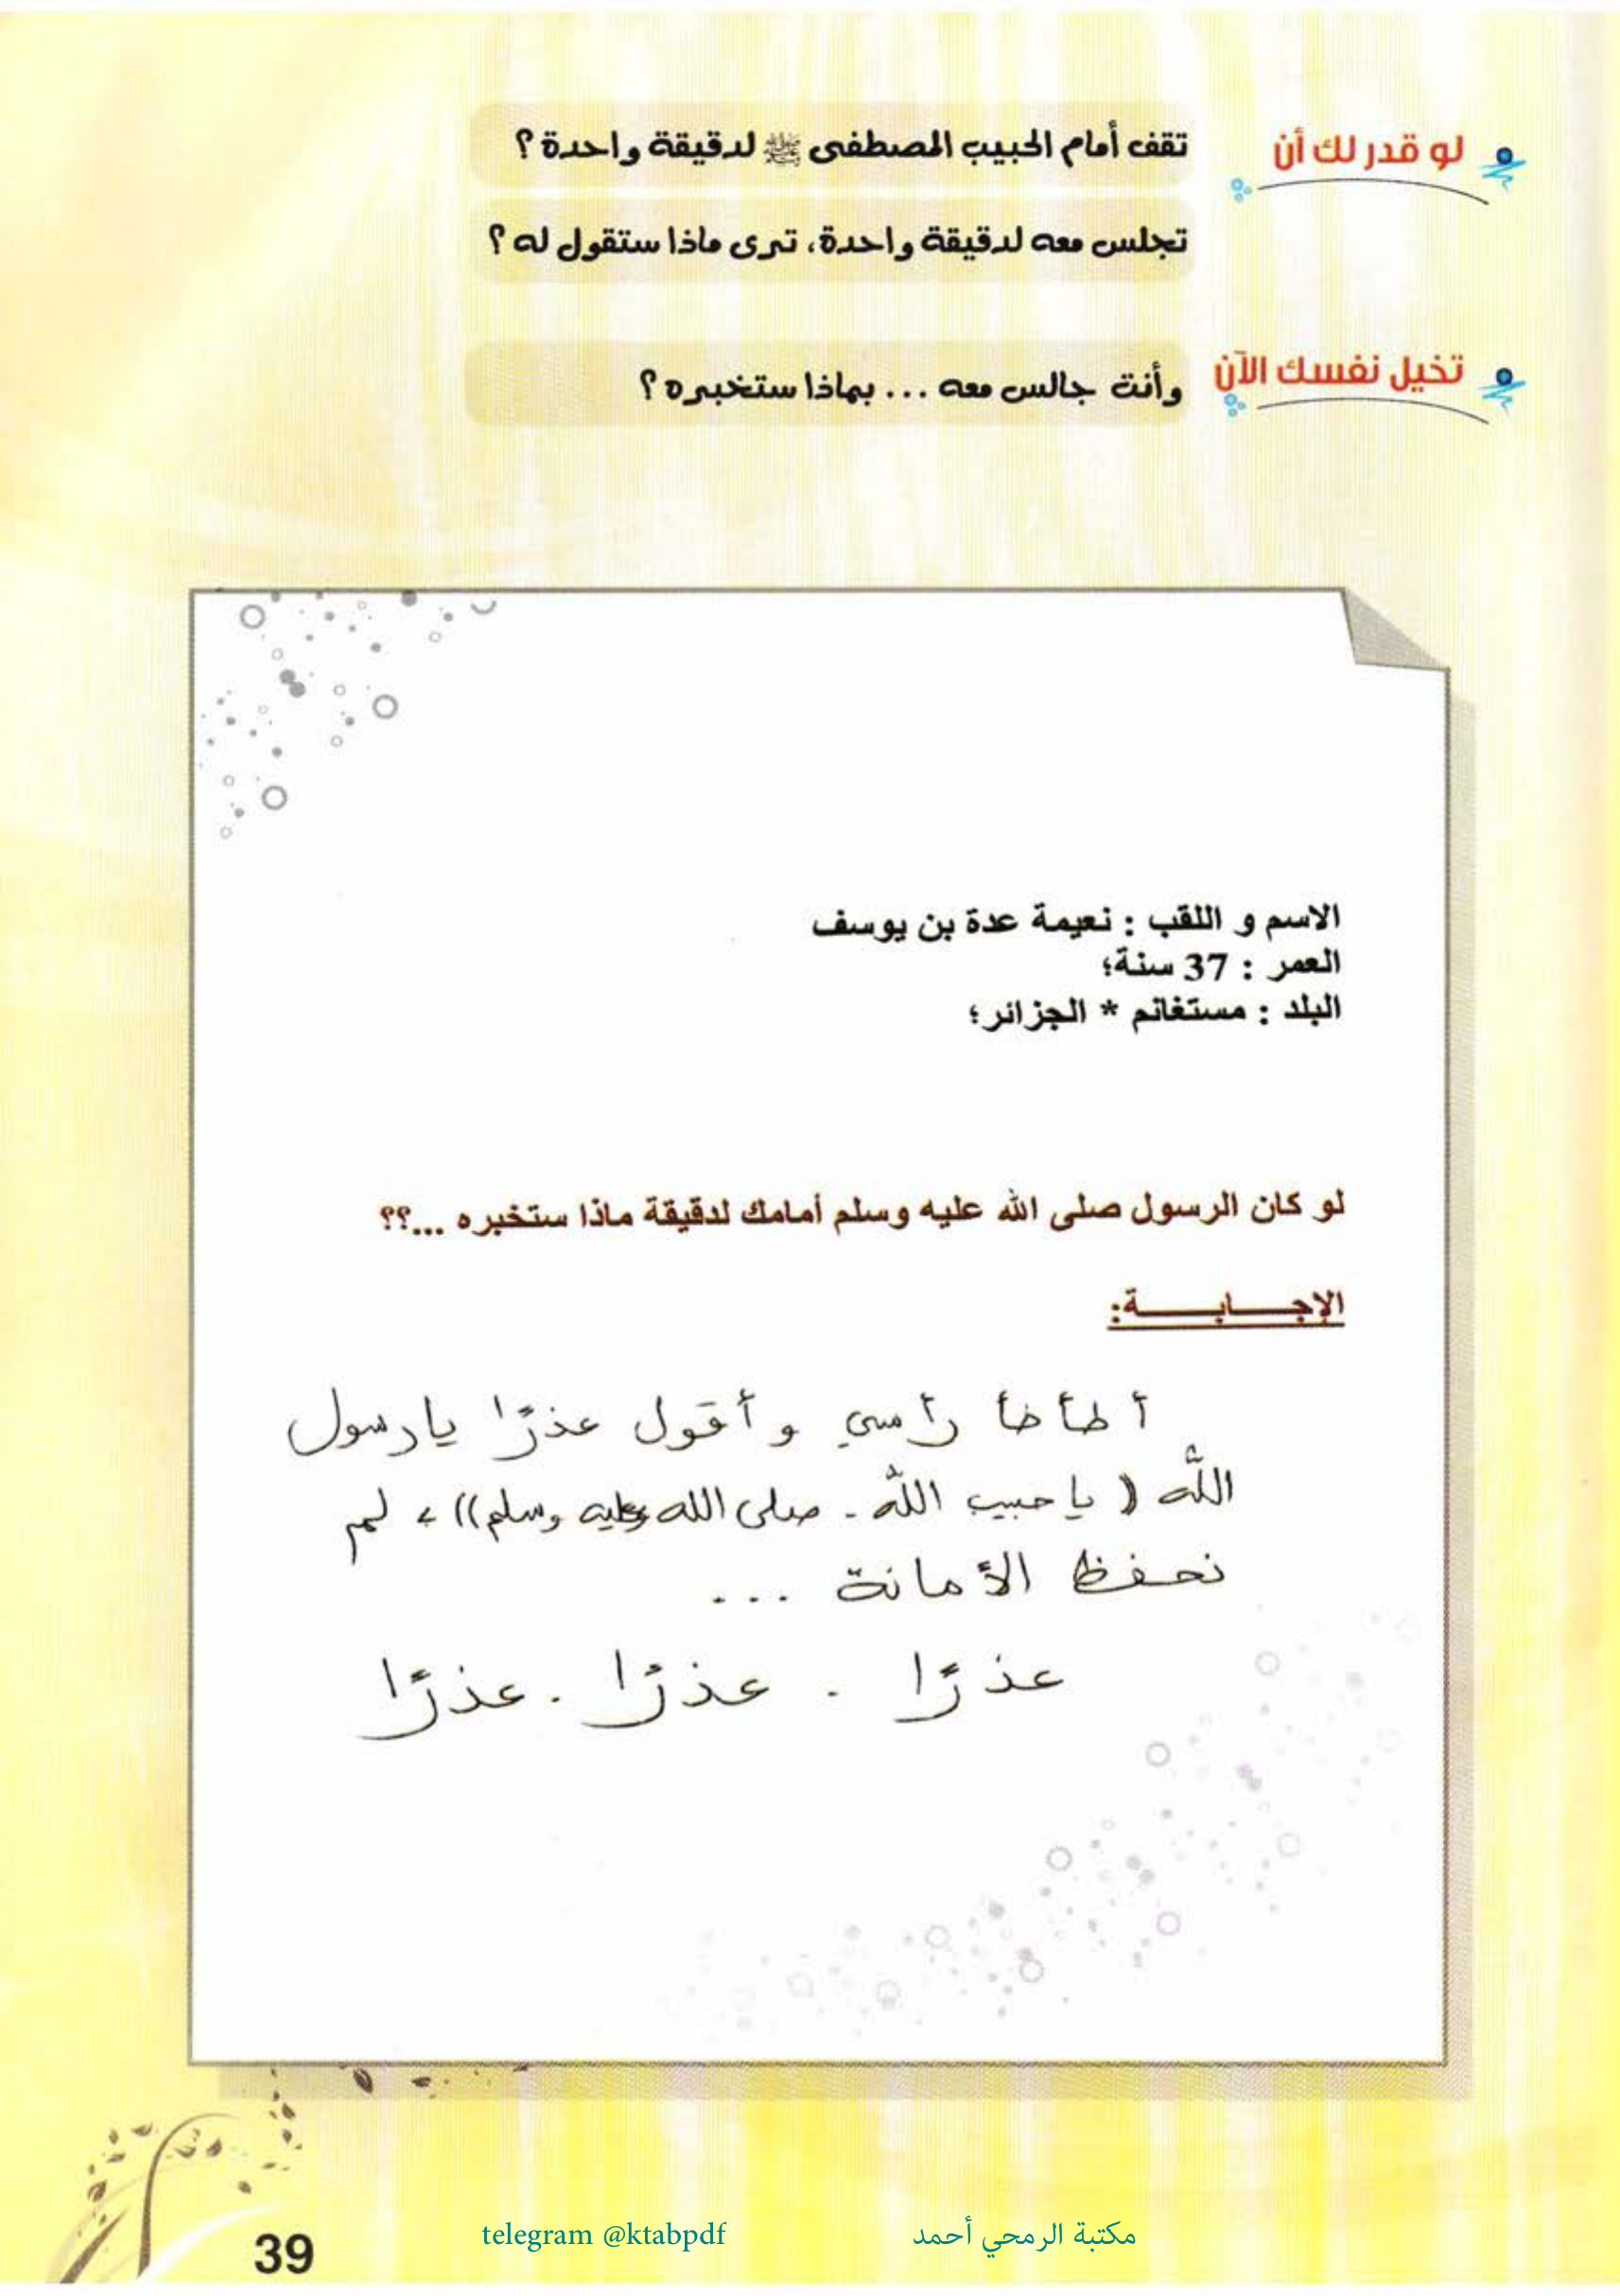 لو قدر لك أن
تقف أمام الحبيب المصطفى ﷺ لدقيقة واحدة ؟
تجلس معه لدقيقة واحدة، ترى ماذا ستقول له ؟
تخيل نفسك الآن
وأنت جالس معه ... بماذا ستخبره ؟
الاسم و اللقب : نعيمة عدة بن يوسف
العمر : 37 سنة؛
البلد : مستغانم * الجزائر؛
لو كان الرسول صلى الله عليه وسلم أمامك لدقيقة ماذا ستخبره ...؟؟
الإجـــابـــــة:
أطأطأ رأسي وأقول عذرًا يا رسول
الله (( يا حبيب الله - صلى الله عليه وسلم))، لم
نحفظ الأمانة ...
عذرًا . عذرًا . عذرًا
39
telegram @ktabpdf
مكتبة الرمحي أحمد